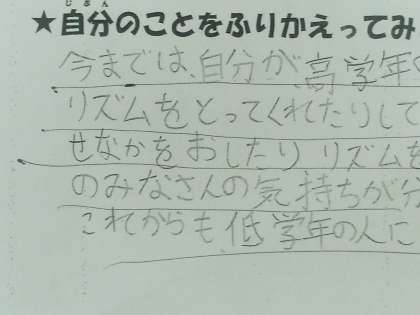 じぶん
★自分のことをふりかえってみ
今までは、自分が、高学年
リズムをとってくれたりして
せなかをおしたりリズムを
のみなさんの気持ちが分
これからも低学年の人に